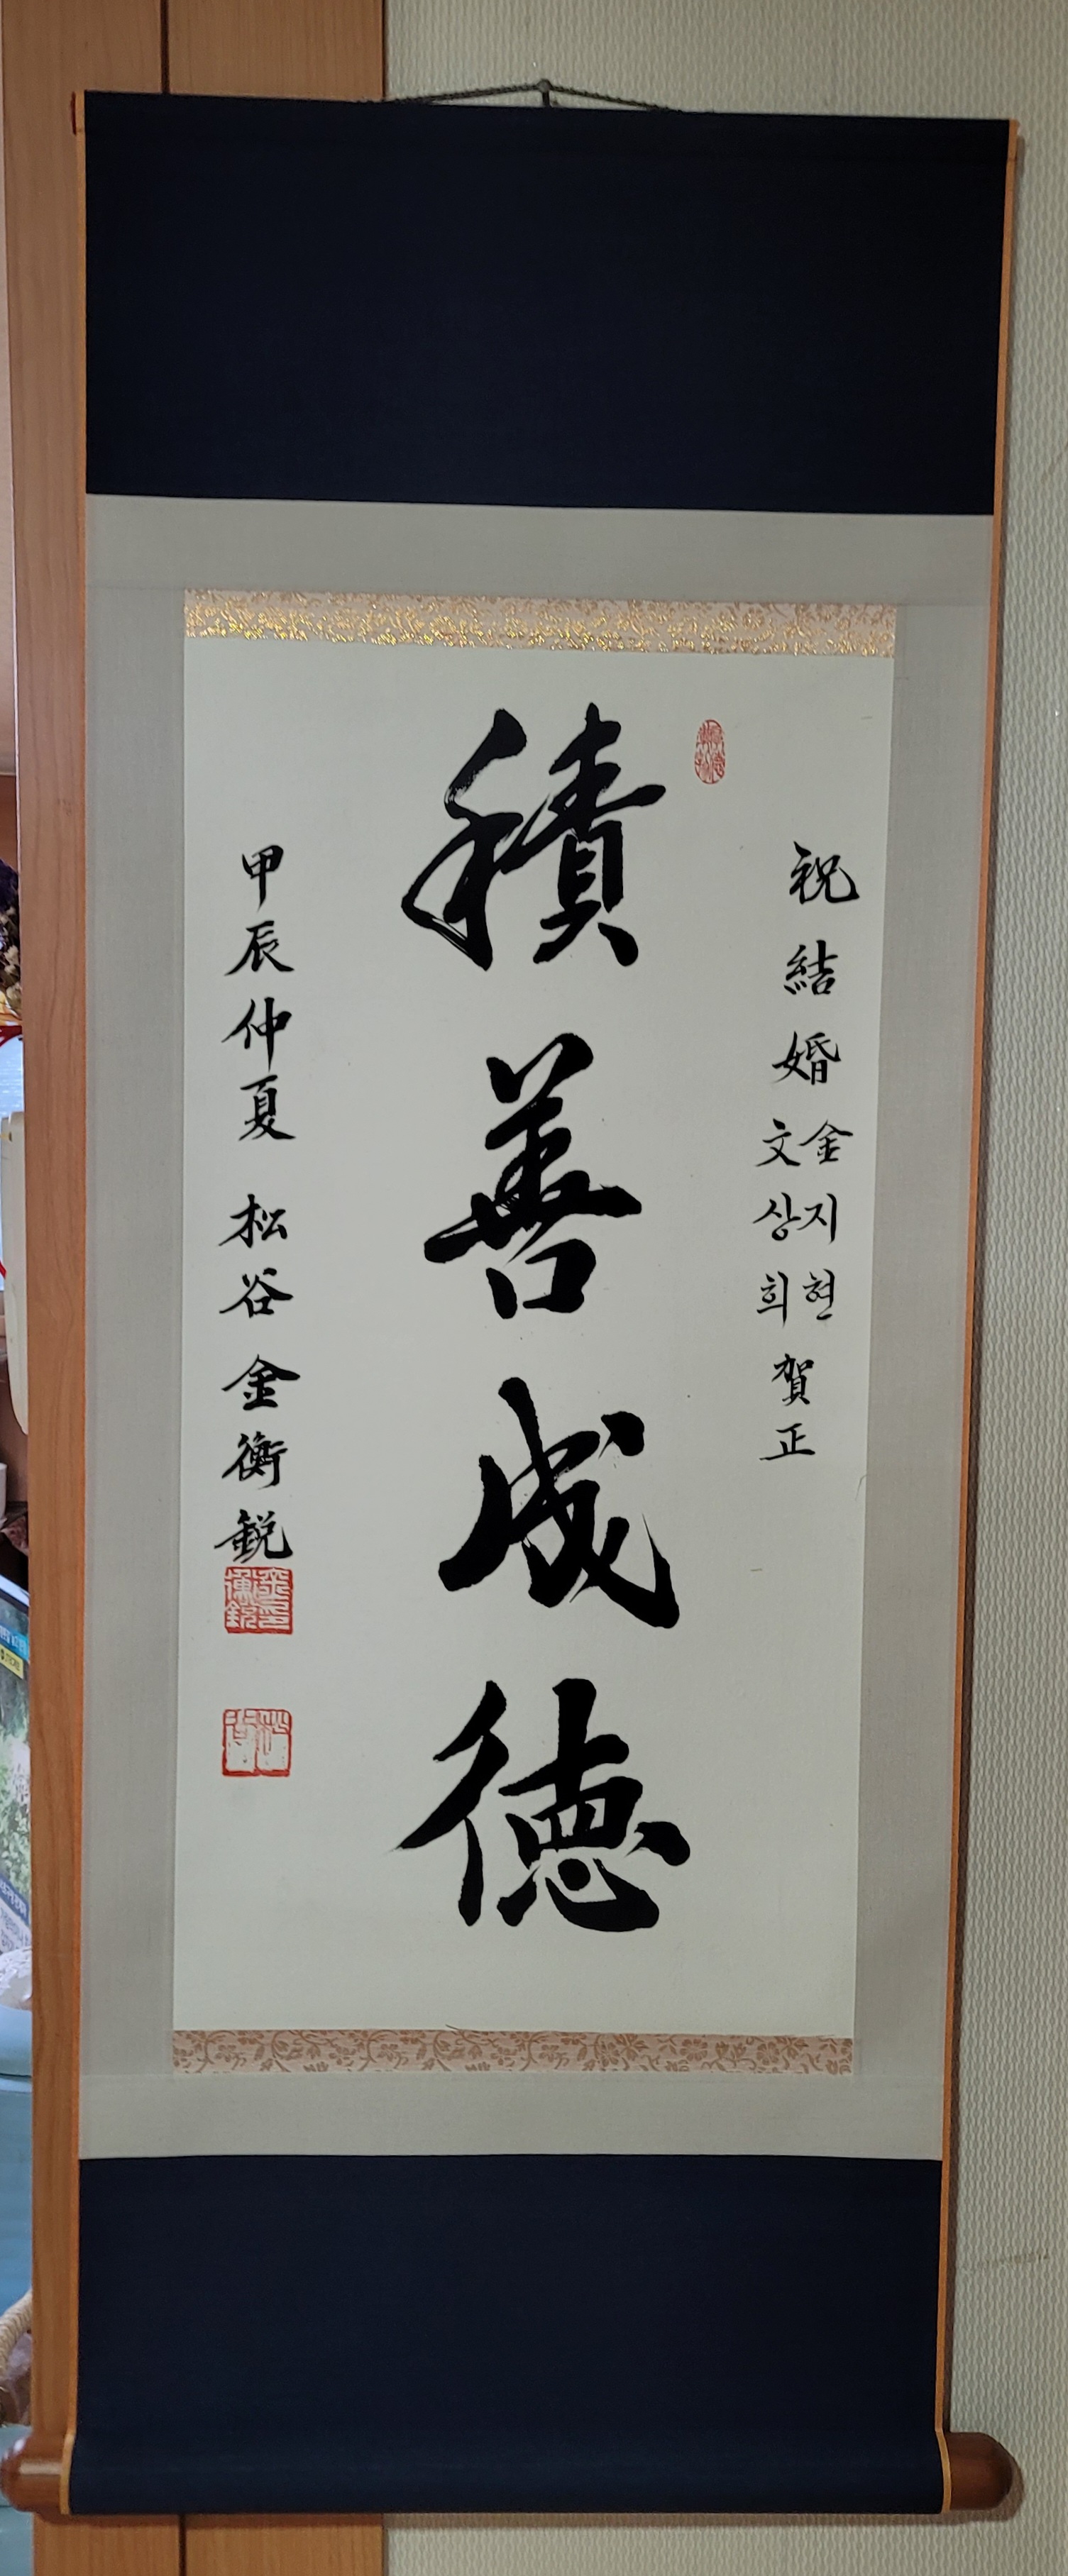 祝結婚 金지현 文상희 賀正
積善成德
甲辰仲夏 松谷 金衡銳